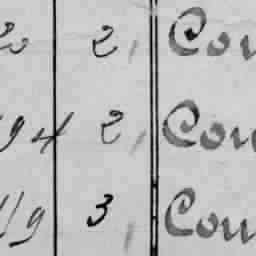 20 2, Cou
94 2, Cou
119 3, Cou